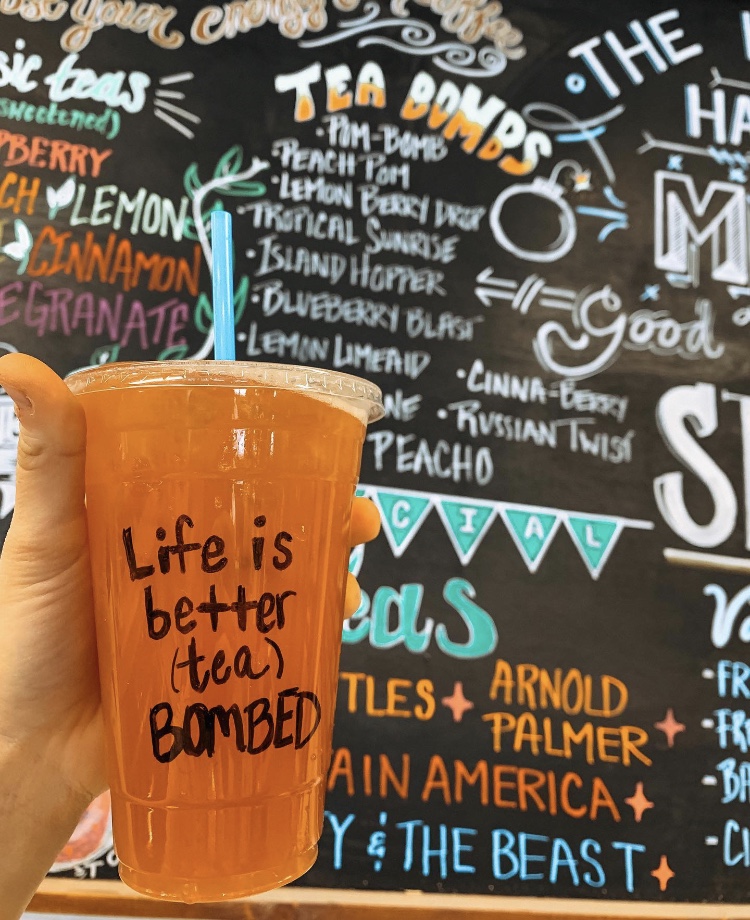 your energy & coffee
sic teas
(sweetened)
PBERRY
CH LEMON
CINNAMON
EGRANATE
TEA BOMBS
•POM-BOMB
•PEACH POM
•LEMON BERRY DROP
•TROPICAL SUNRISE
•ISLAND HOPPER
•BLUEBERRY BLAST
•LEMON LIMEAID
NE
PEACHO
•CINNA-BERRY
•RUSSIAN TWIST
CIAL
eas
TLES
ARNOLD
PALMER
AIN AMERICA
Y & THE BEAST
THE
HA
M
Good
S
-FR
-FR
-BA
-CI
Life is
better
(tea)
BOMBED